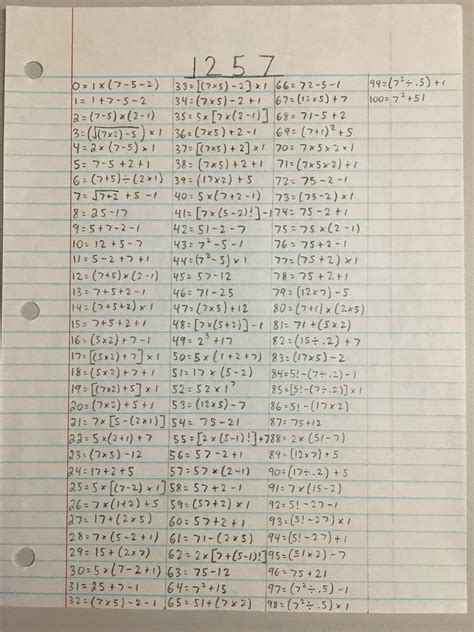 1257
0=1×(7-5-2)
1=1+7-5-2
2=(7-5)×(2-1)
3=(√(7×2)-5)×1
4=2×(7-5)×1
5=7-5+2+1
6=(7+5)÷(2×1)
7=√7+2 +5-1
8=25-17
9=5+7-2-1
10=12+5-7
11=5-2+7+1
12=(7+5)×(2-1)
13=7+5+2-1
14=(7+5+2)×1
15=7+5+2+1
16=(5×2)+7-1
17=[(5×2)+7]×1
18=(5×2)+7+1
19=[(7×2)+5]×1
20=(7×2)+5+1
21=7×[5-(2×1)]
22=5×(2+1)+7
23=(7×5)-12
24=17+2+5
25=5×[(7-2)×1]
26=7×(1+2)+5
27=17+(2×5)
28=7×(5-2+1)
29=15+(2×7)
30=5×(7-2+1)
31=25+7-1
32=(7×5)-2-1
33=[(7×5)-2]×1
34=(7×5)-2+1
35=5×[7×(2-1)]
36=(7×5)+2-1
37=[(7×5)+2]×1
38=(7×5)+2+1
39=(17×2)+5
40=5×(7+2-1)
41=[7×(5-2)!]-1
42=51-2-7
43=7²-5-1
44=(7²-5)×1
45=57-12
46=71-25
47=(7×5)+12
48=[7×(5+2)]-1
49=2⁵+17
50=5×(1+2+7)
51=17×(5-2)
52=52×1⁷
53=(12×5)-7
54=75-21
55=[2×(5-1)!]+7
56=57-2+1
57=57×(2-1)
58=57+2-1
59=(57+2)×1
60=57+2+1
61=71-(2×5)
62=2×[7+(5-1)!]
63=75-12
64=7²+15
65=51+(7×2)
66=72-5-1
67=(12×5)+7
68=71-5+2
69=(7+1)²+5
70=7×5×2×1
71=(7×5×2)+1
72=75-2-1
73=(75-2)×1
74=75-2+1
75=75×(2-1)
76=75+2-1
77=(75+2)×1
78=75+2+1
79=(12×7)-5
80=(7+1)×(2×5)
81=71+(5×2)
82=(15÷.2)+7
83=(17×5)-2
84=5!-(7÷.2)-1
85=[5!-(7÷.2)]×1
86=5!-(17×2)
87=75+12
88=2×(51-7)
89=(12×7)+5
90=(17÷.2)+5
91=7×(15-2)
92=5!-27-1
93=(5!-27)×1
94=5!-27+1
95=(51×2)-7
96=75+21
97=(7²÷.5)-1
98=(7²÷.5)×1
99=(7²÷.5)+1
100=7²+51